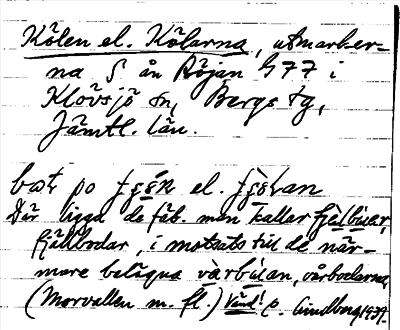 Kölen el. Kölarna, utmarker-
na S ån Röjan G77 i
Klövsjö sn, Bergs tg,
Jämtl. län.
po el.
Där ligga de fäb. man kallar
fjällbodar, i motsats till de när-
mare belägna vårbodarna
(Morvallen m. fl.) Vänd! p. Lindberg 1939.